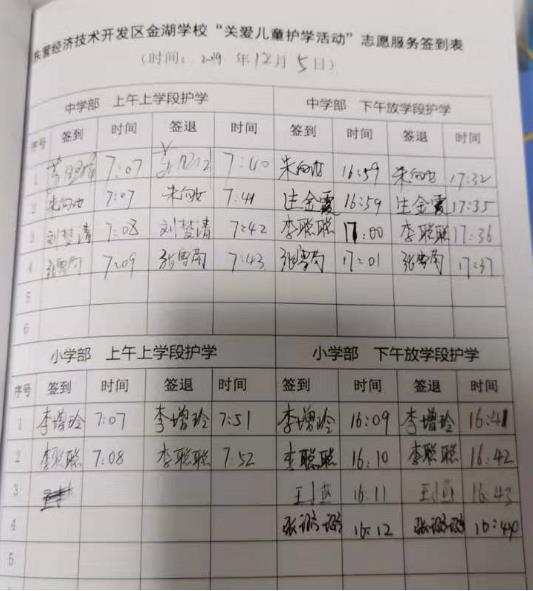 东营经济技术开发区金湖学校“关爱儿童护学活动”志愿服务签到表
(时间: 2019 年12月5日)
中学部 上午上学段护学 中学部 下午放学段护学
序号 签到 时间 签退 时间 签到 时间 签退 时间
1 7:07 7:40 朱向女 16:59 朱向女 17:32
2 朱向女 7:07 朱向女 7:41 庄金霞 16:59 庄金霞 17:35
3 刘梦清 7:08 刘梦清 7:42 李聪聪 17:00 李聪聪 17:36
4 张雪芮 7:09 张雪芮 7:43 张雪芮 17:01 张雪芮 17:37
5
6
小学部 上午上学段护学 小学部 下午放学段护学
序号 签到 时间 签退 时间 签到 时间 签退 时间
1 李增玲 7:07 李增玲 7:51 李增玲 16:09 李增玲 16:41
2 李聪聪 7:08 李聪聪 7:52 李聪聪 16:10 李聪聪 16:42
3 16:11 16:43
4 张璐璐 16:12 张璐璐 16:44
5